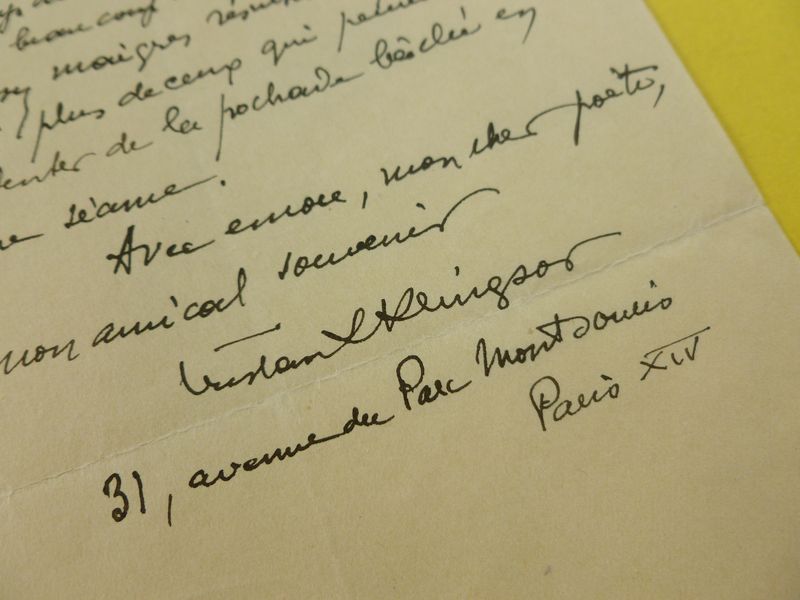 beaucoup
maigres résu
plus de ceux qui peuve
enter de la pochade bâclée en
séance.
Avec encore, mon cher poète,
mon amical souvenir
Tristan Klingsor
31, avenue du Parc Montsouris
Paris XIV